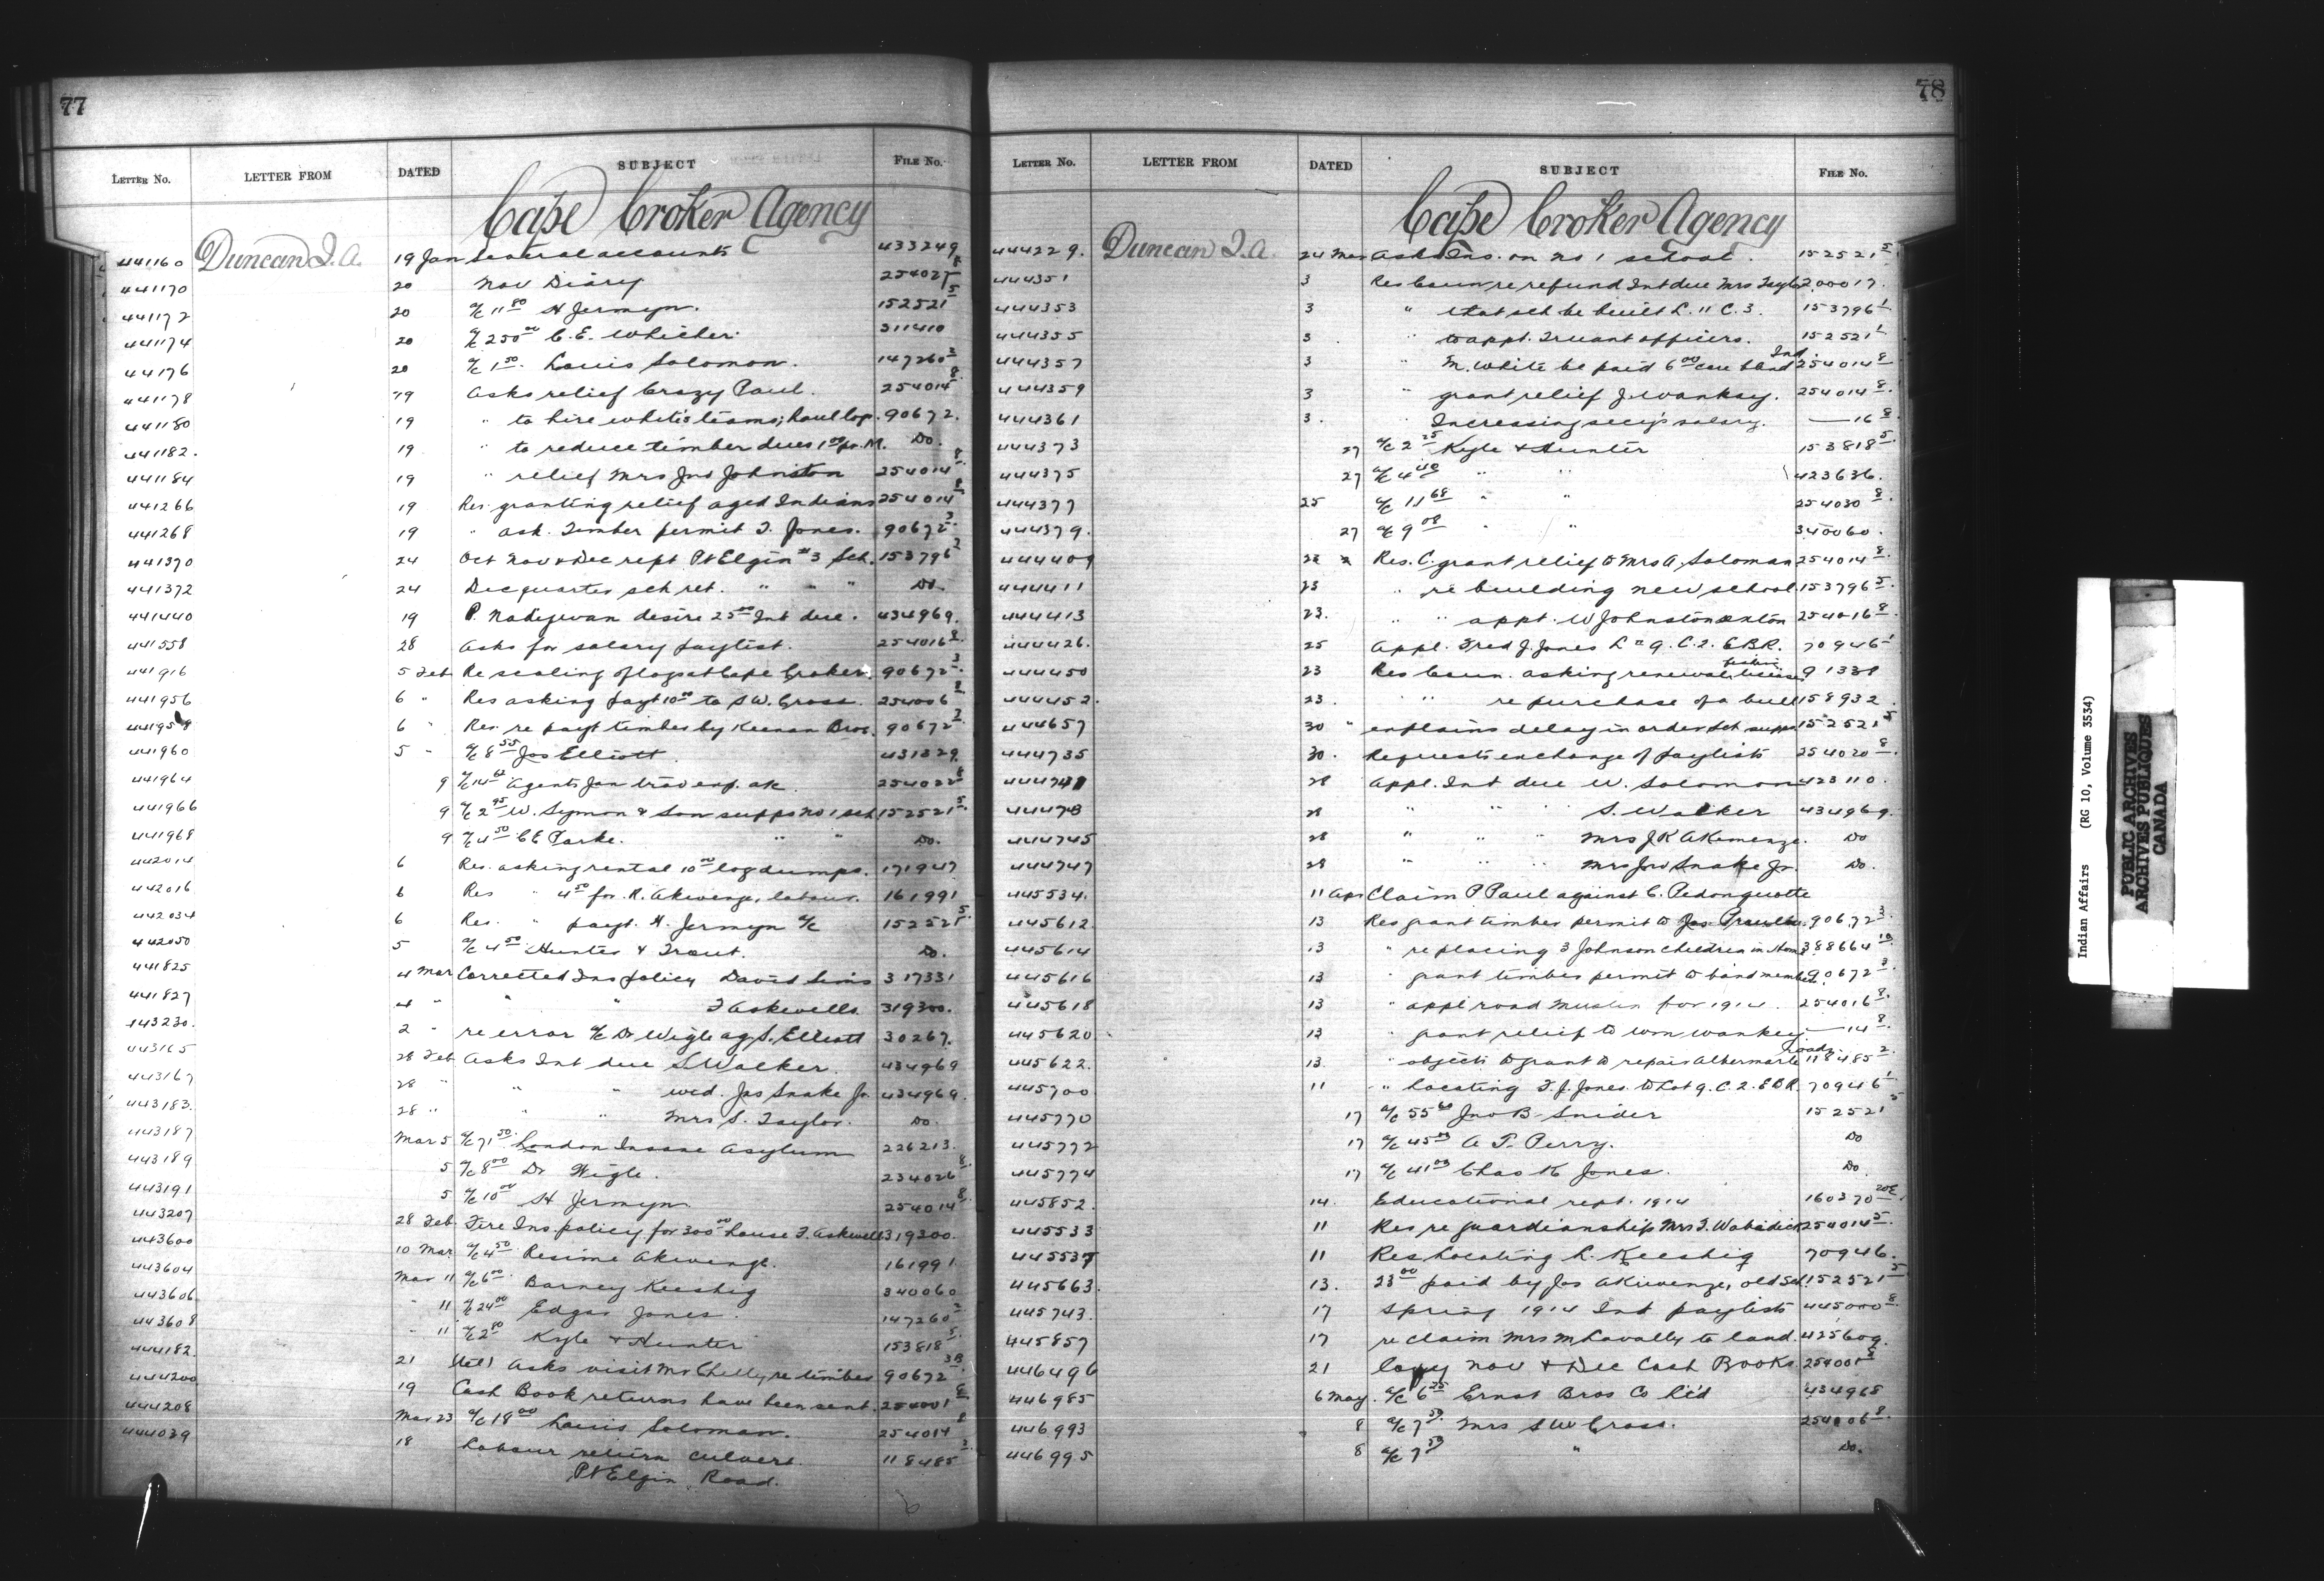 77
LETTER No. LETTER FROM DATED SUBJECT FILE No.
Cape Croker Agency
441160 Duncan J.A. 19 Jan Several accounts 433249
441170 20 Nov Diary 254027 8
441172 20 a/c 11 80 H Jermyn. 152521 5
441174 20 a/c 250 00 C.E. Whicher 311410
44176 20 a/c 1 50 Louis Solomon. 147260 3
441178 19 Asks relief Crazy Paul. 254014 8
441180 19 " to hire white's teams; haul log. 90672.
441182. 19 " to reduce timber dues 1 00 pr. M. Do.
441184 19 " relief Mrs Jno Johnston 254014 8
441266 19 Res. granting relief aged Indians 254014 8
441268 19 " ask. Timber permit T. Jones. 90672 3
441370 24 Oct Nov & Dec rept Pt Elgin #3 Sch. 153796 2
441372 24 Dec quarter sch ret. " " " Do.
441440 19 P. Nadjiwan desire 25 00 Int due. 434969.
441558 28 Asks for salary paylist. 254016 8
441916 5 Feb Re scaling of logs at Cape Croker. 90672 3
441956 6 " Res asking payt 10 00 to S W. Cross. 254006 8
441958 6 " Res. re payt timber by Keenan Bros. 90672 3
441960 5 " a/c 8 55 Jos Elliott. 431829.
441964 9 a/c 14 Agents Jan trav exp. ak. 254022 8
441966 9 a/c 2 45 W. Symon & Son supps no 1 sch 152521 5
441968 9 a/c 4 50 C E Parke. " " Do.
442014 6 Res. asking rental 10 00 log dumps. 171947
442016 6 Res " 4 50 for R. Akiwenzie, labour. 161991
442034 6 Res. " payt. H. Jermyn a/c 152521 5
442050 5 a/c 4 50 Hunter & Trout. Do.
441825 4 Mar Corrected Ins policy David Sims 317331
441827 4 " " " T Askewells. 319300.
443230. 2 " re error a/c Dr Wigle ag. S. Elliott 30267.
443165 28 Feb Asks Int due S Walker. 434969
443167 28 " " " wid. Jas Snake Jr. 434969.
443183. 28 " " " Mrs S. Taylor. Do.
443187 Mar 5 a/c 71 50 London Insane Asylum 226213.
443189 5 a/c 8 00 Dr Wigle. 234026 8
443191 5 a/c 10 00 H Jermyn 254014 8
443207 28 Feb. Fire Ins. policy for 300 00 house T. Askewell 319300.
443600 10 Mar. a/c 4 50 Resime Akiwenzie. 161991
443604 Mar 11 a/c 6 00 Barney Keeshig 340060
443606 " 11 a/c 24 00 Edgar Jones. 147260 3
443608 " 11 a/c 2 80 Kyle & Hunter 153818 5
444182 21 (tel) Asks visit Mr Chelly re timber 90672 3B
444200 19 Cash Book returns have been sent. 254001 8
444208 Mar 23 a/c 18 00 Louis Solomon. 254014 8
444039 18 Labour return culvert 118485 2
Pt Elgin Road.
78
LETTER No. LETTER FROM DATED SUBJECT FILE No.
Cape Croker Agency
444229. Duncan J.A. 24 Mar Asks Ins. on no 1 school. 152521 5
444351 3 Res Coun re refund Int due Mrs Taylor 200017.
444353 3 " that sch be built L. 11 C. 3. 153796 1
444355 3 " to appt. Truant officers. 152521 1
444357 3 " M. White be paid 6 00 care blind Ind. 254014 8
444359 3 " grant relief J. Wankay. 254014 8
444361 3. " Increasing secy's salary. —16 8
444373 27 a/c 2 25 Kyle & Hunter 153818 5
444375 27 a/c 4 40 " " 423636.
444377 25 a/c 11 68 " " 254030 8
444379. 27 a/c 9 08 " " 340060.
444409 23 Res. C. grant relief to Mrs A. Soloman 254014 8
444411 23 " re building new school. 153796 5
444413 23. " " appt. W Johnston sexton 254016 8
444426. 25 Appl. Fred J. Jones L" 9. C. 2. E.B.R. 70946 1
444450 23 Res Coun. asking renewal fishing license 91338
444452. 23. " " re purchase of a bull 158932.
444657 30 " explains delay in order sch supps 152521 5
444735 30. Requests exchange of paylists 254020 8
444741 28 Appl. Int due W. Solomon 423110.
44473 28 " " S. Walker 434969.
444745 28 " " " Mrs J K Akiwenzie. Do
444747 28 " " " Mrs Jno Snake Jr. Do.
445534. 11 Apr Claim P Paul against C. Pedonquotte
445612. 13 Res grant timber permit to Jas. 90672 3
445614 13 " re placing 3 Johnson children in Home 388664 10
445616 13 " grant timber permit to band members 90672 3
445618 13 " appl road Master for 1914. 254016 8
445620 13 " grant relief to Wm Wankey —14 8
445622. 13 " objects to grant to repair Albermarle roads 118485 2
445700 11 " locating F. J. Jones to Lot 9. C. 2. E B R. 70946 1
445770 17 a/c 55 60 Jno B Snider 152521 5
445772 17 a/c 45 00 A. T. Perry. Do
445774 17 a/c 41 00 Chas K Jones. Do
445852. 14. Educational rept. 1914 160370 20E
445533 11 Res re guardianship Mrs T. Wabadick 254014 5
445537 11 Res Locating L. Keeshig 70946.
445663. 13. 23 00 paid by Jos Akiwenzie, old sch. 152521 5
445743. 17 Spring 1914 Int paylists 445000 8
445857 17 re claim Mrs M Lavally to land. 425609.
446496 21 Copy Nov & Dec Cash Books. 254001 8
446985 6 May. a/c 6 25 Ernst Bros Co Lt'd 434968
446993 8 a/c 7 50 Mrs S W Cross. 254006 8
446995 8 a/c 7 50 " Do.
Indian Affairs (RG 10, Volume 3534)
PUBLIC ARCHIVES
ARCHIVES PUBLIQUES
CANADA